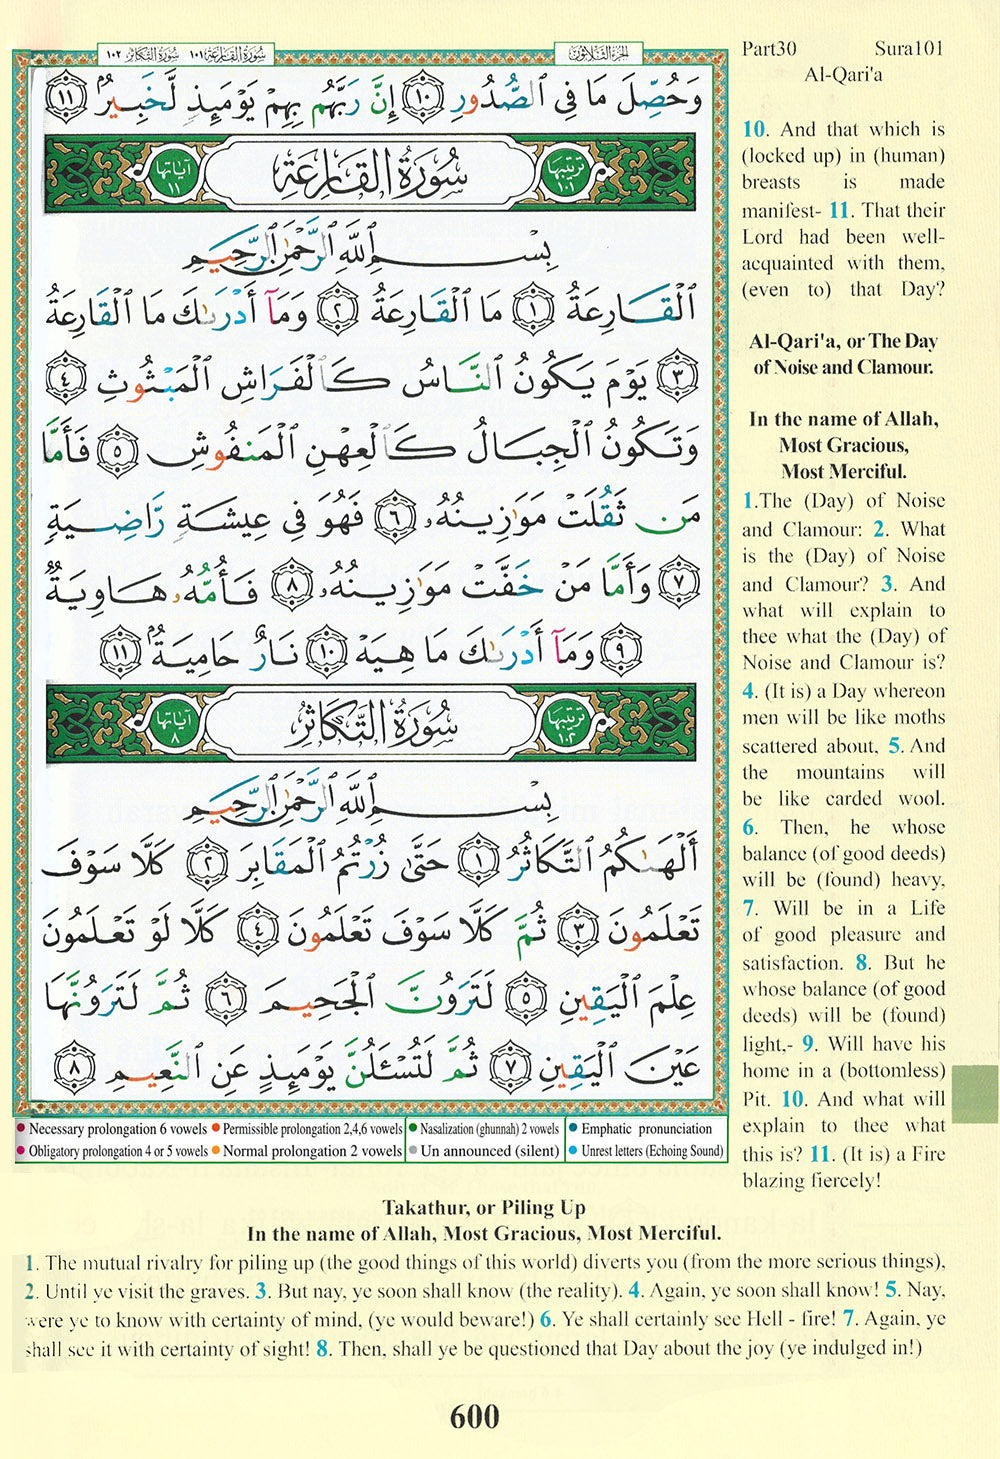 سورة القارعة ١٠١ سورة التكاثر ١٠٢
الجزء الثلاثون
وَحُصِّلَ مَا فِي ٱلصُّدُورِ ١٠ إِنَّ رَبَّهُم بِهِمْ يَوْمَئِذٍ لَّخَبِيرٌۢ ١١
ترتيبها ١٠١
سُورَةُ القَارِعَةِ
آياتها ١١
بِسْمِ ٱللَّهِ ٱلرَّحْمَٰنِ ٱلرَّحِيمِ
ٱلْقَارِعَةُ ١ مَا ٱلْقَارِعَةُ ٢ وَمَآ أَدْرَىٰكَ مَا ٱلْقَارِعَةُ
٣ يَوْمَ يَكُونُ ٱلنَّاسُ كَٱلْفَرَاشِ ٱلْمَبْثُوثِ ٤
وَتَكُونُ ٱلْجِبَالُ كَٱلْعِهْنِ ٱلْمَنفُوشِ ٥ فَأَمَّا
مَن ثَقُلَتْ مَوَٰزِينُهُۥ ٦ فَهُوَ فِي عِيشَةٍ رَّاضِيَةٍ
٧ وَأَمَّا مَنْ خَفَّتْ مَوَٰزِينُهُۥ ٨ فَأُمُّهُۥ هَاوِيَةٌ
٩ وَمَآ أَدْرَىٰكَ مَا هِيَهْ ١٠ نَارٌ حَامِيَةٌۢ ١١
ترتيبها ١٠٢
سُورَةُ التَّكَاثُرِ
آياتها ٨
بِسْمِ ٱللَّهِ ٱلرَّحْمَٰنِ ٱلرَّحِيمِ
أَلْهَىٰكُمُ ٱلتَّكَاثُرُ ١ حَتَّىٰ زُرْتُمُ ٱلْمَقَابِرَ ٢ كَلَّا سَوْفَ
تَعْلَمُونَ ٣ ثُمَّ كَلَّا سَوْفَ تَعْلَمُونَ ٤ كَلَّا لَوْ تَعْلَمُونَ
عِلْمَ ٱلْيَقِينِ ٥ لَتَرَوُنَّ ٱلْجَحِيمَ ٦ ثُمَّ لَتَرَوُنَّهَا
عَيْنَ ٱلْيَقِينِ ٧ ثُمَّ لَتُسْـَٔلُنَّ يَوْمَئِذٍ عَنِ ٱلنَّعِيمِ ٨
Necessary prolongation 6 vowels Permissible prolongation 2,4,6 vowels Nasalization (ghunnah) 2 vowels Emphatic pronunciation
Obligatory prolongation 4 or 5 vowels Normal prolongation 2 vowels Un announced (silent) Unrest letters (Echoing Sound)
Part30 Sura101
Al-Qari'a
10. And that which is
(locked up) in (human)
breasts is made
manifest- 11. That their
Lord had been well-
acquainted with them,
(even to) that Day?
Al-Qari'a, or The Day
of Noise and Clamour.
In the name of Allah,
Most Gracious,
Most Merciful.
1.The (Day) of Noise
and Clamour: 2. What
is the (Day) of Noise
and Clamour? 3. And
what will explain to
thee what the (Day) of
Noise and Clamour is?
4. (It is) a Day whereon
men will be like moths
scattered about, 5. And
the mountains will
be like carded wool.
6. Then, he whose
balance (of good deeds)
will be (found) heavy,
7. Will be in a Life
of good pleasure and
satisfaction. 8. But he
whose balance (of good
deeds) will be (found)
light,- 9. Will have his
home in a (bottomless)
Pit. 10. And what will
explain to thee what
this is? 11. (It is) a Fire
blazing fiercely!
Takathur, or Piling Up
In the name of Allah, Most Gracious, Most Merciful.
1. The mutual rivalry for piling up (the good things of this world) diverts you (from the more serious things),
2. Until ye visit the graves. 3. But nay, ye soon shall know (the reality). 4. Again, ye soon shall know! 5. Nay,
were ye to know with certainty of mind, (ye would beware!) 6. Ye shall certainly see Hell - fire! 7. Again, ye
shall see it with certainty of sight! 8. Then, shall ye be questioned that Day about the joy (ye indulged in!)
600